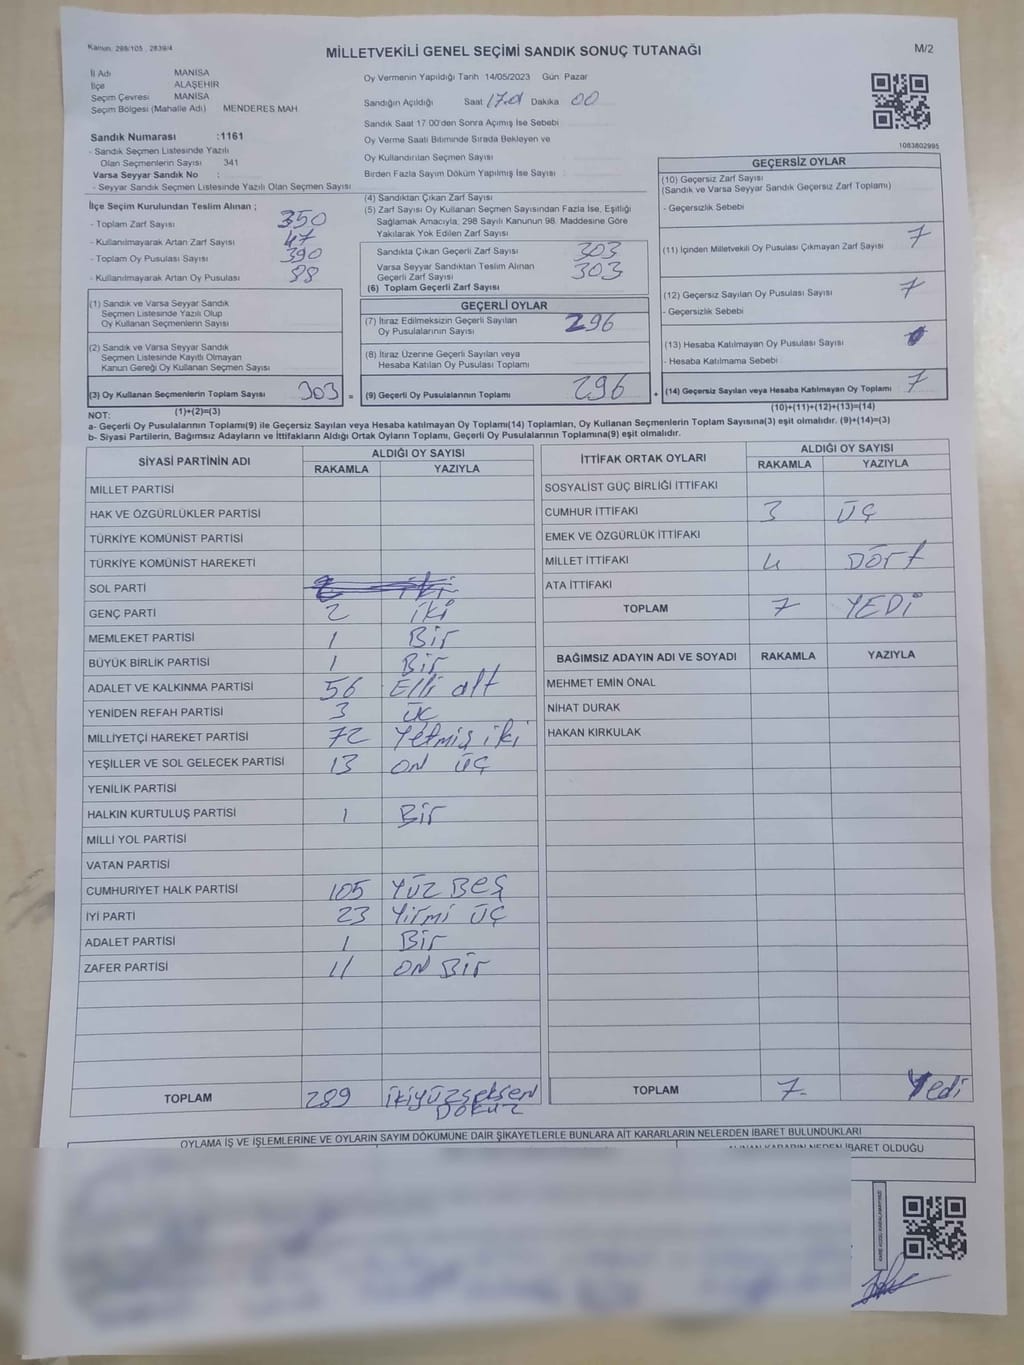 Kanun, 298/105 , 2839/4
MİLLETVEKİLİ GENEL SEÇİMİ SANDIK SONUÇ TUTANAĞI
M/2
İl Adı MANİSA
İlçe ALAŞEHİR
Seçim Çevresi MANİSA
Seçim Bölgesi (Mahalle Adı) MENDERES MAH.
Sandık Numarası :1161
- Sandık Seçmen Listesinde Yazılı
Olan Seçmenlerin Sayısı 341
Varsa Seyyar Sandık No :
- Seyyar Sandık Seçmen Listesinde Yazılı Olan Seçmen Sayısı
Oy Vermenin Yapıldığı Tarih 14/05/2023 Gün Pazar
Sandığın Açıldığı Saat Dakika 00
Sandık Saat 17:00'den Sonra Açımış İse Sebebi
Oy Verme Saati Bitiminde Sırada Bekleyen ve
Oy Kullandırılan Seçmen Sayısı
Birden Fazla Sayım Döküm Yapılmış İse Sayısı :
1083802995
İlçe Seçim Kurulundan Teslim Alınan ;
- Toplam Zarf Sayısı 350
- Kullanılmayarak Artan Zarf Sayısı 47
- Toplam Oy Pusulası Sayısı 390
- Kullanılmayarak Artan Oy Pusulası 88
(1) Sandık ve Varsa Seyyar Sandık
Seçmen Listesinde Yazılı Olup
Oy Kullanan Seçmenlerin Sayısı
(2) Sandık ve Varsa Seyyar Sandık
Seçmen Listesinde Kayıtlı Olmayan
Kanun Gereği Oy Kullanan Seçmen Sayısı
(3) Oy Kullanan Seçmenlerin Toplam Sayısı 303 =
(1)+(2)=(3)
(4) Sandıktan Çıkan Zarf Sayısı
(5) Zarf Sayısı Oy Kullanan Seçmen Sayısından Fazla İse, Eşitliği
Sağlamak Amacıyla; 298 Sayılı Kanunun 98. Maddesine Göre
Yakılarak Yok Edilen Zarf Sayısı
Sandıkta Çıkan Geçerli Zarf Sayısı 303
Varsa Seyyar Sandıktan Teslim Alınan
Geçerli Zarf Sayısı 303
(6) Toplam Geçerli Zarf Sayısı
GEÇERLİ OYLAR
(7) İtiraz Edilmeksizin Geçerli Sayılan
Oy Pusulalarının Sayısı 296
(8) İtiraz Üzerine Geçerli Sayılan veya
Hesaba Katılan Oy Pusulası Toplamı
(9) Geçerli Oy Pusulalarının Toplamı 296 +
GEÇERSİZ OYLAR
(10) Geçersiz Zarf Sayısı
(Sandık ve Varsa Seyyar Sandık Geçersiz Zarf Toplamı)
- Geçersizlik Sebebi
(11) İçinden Milletvekili Oy Pusulası Çıkmayan Zarf Sayısı 7
(12) Geçersiz Sayılan Oy Pusulası Sayısı 7
- Geçersizlik Sebebi
(13) Hesaba Katılmayan Oy Pusulası Sayısı
- Hesaba Katılmama Sebebi
(14) Geçersiz Sayılan veya Hesaba Katılmayan Oy Toplamı 7
(10)+(11)+(12)+(13)=(14)
NOT:
a- Geçerli Oy Pusulalarının Toplamı(9) ile Geçersiz Sayılan veya Hesaba katılmayan Oy Toplamı(14) Toplamları, Oy Kullanan Seçmenlerin Toplam Sayısına(3) eşit olmalıdır. (9)+(14)=(3)
b- Siyasi Partilerin, Bağımsız Adayların ve İttifakların Aldığı Ortak Oyların Toplamı, Geçerli Oy Pusulalarının Toplamına(9) eşit olmalıdır.
SİYASİ PARTİNİN ADI ALDIĞI OY SAYISI
RAKAMLA YAZIYLA
MİLLET PARTİSİ
HAK VE ÖZGÜRLÜKLER PARTİSİ
TÜRKİYE KOMÜNİST PARTİSİ
TÜRKİYE KOMÜNİST HAREKETİ
SOL PARTİ
GENÇ PARTİ 2 iki
MEMLEKET PARTİSİ 1 Bir
BÜYÜK BİRLİK PARTİSİ 1 Bir
ADALET VE KALKINMA PARTİSİ 56 Elli altı
YENİDEN REFAH PARTİSİ 3 üç
MİLLİYETÇİ HAREKET PARTİSİ 72 Yetmiş iki
YEŞİLLER VE SOL GELECEK PARTİSİ 13 ON ÜÇ
YENİLİK PARTİSİ
HALKIN KURTULUŞ PARTİSİ 1 Bir
MİLLİ YOL PARTİSİ
VATAN PARTİSİ
CUMHURİYET HALK PARTİSİ 105 YÜZ BEŞ
İYİ PARTİ 23 Yirmi ÜÇ
ADALET PARTİSİ 1 Bir
ZAFER PARTİSİ 11 ON Bir
TOPLAM 289 ikiyüzseksen
DOKUZ
İTTİFAK ORTAK OYLARI ALDIĞI OY SAYISI
RAKAMLA YAZIYLA
SOSYALİST GÜÇ BİRLİĞİ İTTİFAKI
CUMHUR İTTİFAKI 3 ÜÇ
EMEK VE ÖZGÜRLÜK İTTİFAKI
MİLLET İTTİFAKI 4 DÖRT
ATA İTTİFAKI
TOPLAM 7 YEDİ
BAĞIMSIZ ADAYIN ADI VE SOYADI RAKAMLA YAZIYLA
MEHMET EMİN ÖNAL
NİHAT DURAK
HAKAN KIRKULAK
TOPLAM 7 Yedi
OYLAMA İŞ VE İŞLEMLERİNE VE OYLARIN SAYIM DÖKÜMÜNE DAİR ŞİKAYETLERLE BUNLARA AİT KARARLARIN NELERDEN İBARET BULUNDUKLARI
ALINAN KARARIN NEDEN İBARET OLDUĞU